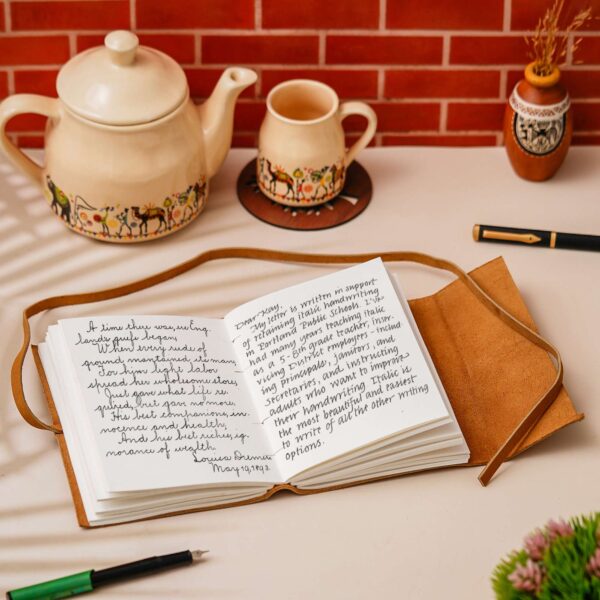 A time there was, ere Eng
lands griefs began,
When every rude of
ground maintained its man;
For him light labor
spread her wholesome store,
Just gave what life re
quired, but gave no more.
His best companions, in
nocence and health,
And his best riches, ig
norance of wealth.
Louisa
May 19, 1892
Dear Kay,
My letter is written in support
of retaining italic handwriting
in Portland Public Schools. I've
had many years teaching italic
as a 5-8th grade teacher, inser-
vicing District employees - includ-
ing principals, janitors, and
secretaries, and instructing
adults who want to improve
their handwriting. Italic is
the most beautiful and easiest
to write of all the other writing
options.